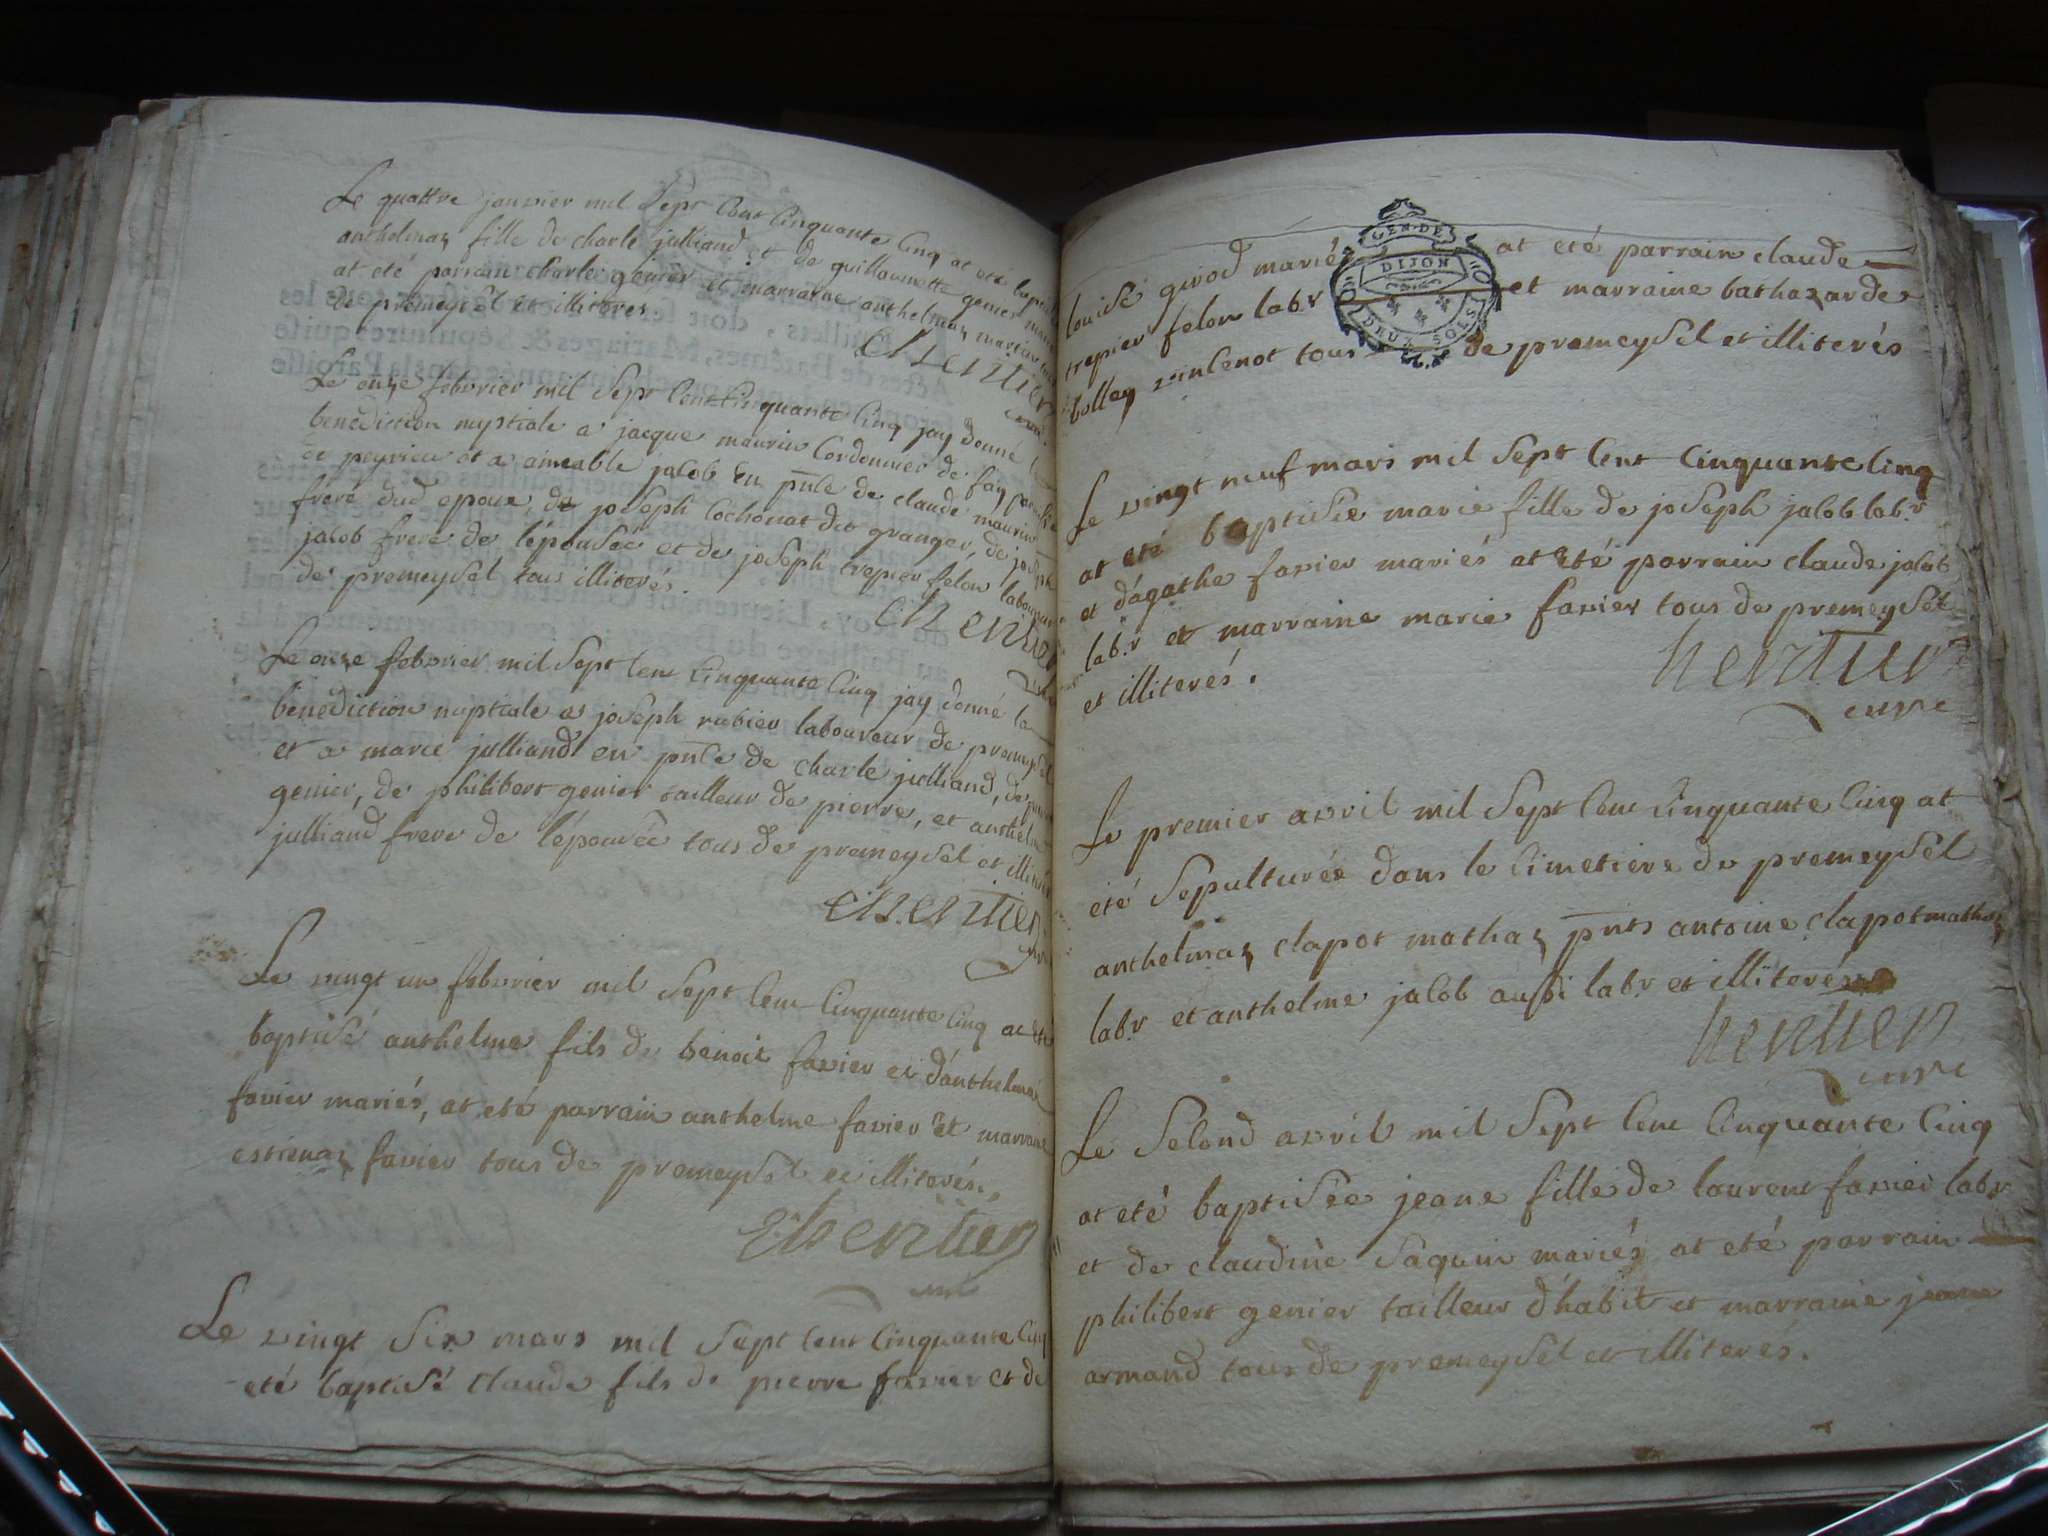 Le quattre janvier mil sept cent cinquante cinq at eté baptisée
anthelmaz fille de charle julliand et de guillaumette genier mariés
at eté parrain charles genier et marraine anthelmaz
de premeysel et illiteres
chentier
curé
Le onze febvrier mil sept cent cinquante cinq jay donné la
benediction nuptiale a jacque maurin cordonnier de fay
de peyrieu et a aimable jacob en pnce de claude maurin
frere dud epoux, de joseph cochonat dit granger, de joseph
jacob frere de l'épousée et de joseph trepier felon laboureur
de premeysel tous illiterés.
chentier
curé
Le onze febvrier mil sept cent cinquante cinq jay donné la
benediction nuptiale a joseph rubier laboureur de premeysel
et a marie julliand en pnce de charle julliand, de
genier, de philibert genier tailleur de pierre, et anthelme
julliand frere de l'épousée tous de premeysel et illiterés
chentier
curé
Le vingt un febvrier mil sept cent cinquante cinq at eté
baptisé anthelme fils de benoit favier et d'anthelmaz
favier mariés, at eté parrain anthelme favier et marraine
estienaz favier tous de premeysel et illiterés.
chentier
curé
Le vingt six mars mil sept cent cinquante cinq
eté baptisé claude fils de pierre favier et de
GEN. DE
DIJON
DEUX SOLS
louise girod mariés at eté parrain claude
trepier felon lab.r et marraine bathazarde
bolley vincenot tous de premeysel et illiterés
Le vingt neuf mars mil sept cent cinquante cinq
at eté baptisée marie fille de joseph jacob lab.r
et d'agathe favier mariés at eté parrain claude jacob
lab.r et marraine marie favier tous de premeysel
et illiterés.
hentier
curé
Le premier avril mil sept cent cinquante cinq at
eté sepulturée dans le cimetiere de premeysel
anthelmaz clapot mathaz pnts antoine clapot mathaz
lab.r et anthelme jacob aussi lab.r et illiterés
hentier
curé
Le second avril mil sept cent cinquante cinq
at eté baptisée jeane fille de laurent favier lab.r
et de claudine saquin mariés at eté parrain
philibert genier tailleur d'habit et marraine jeanne
armand tous de premeysel et illiterés.